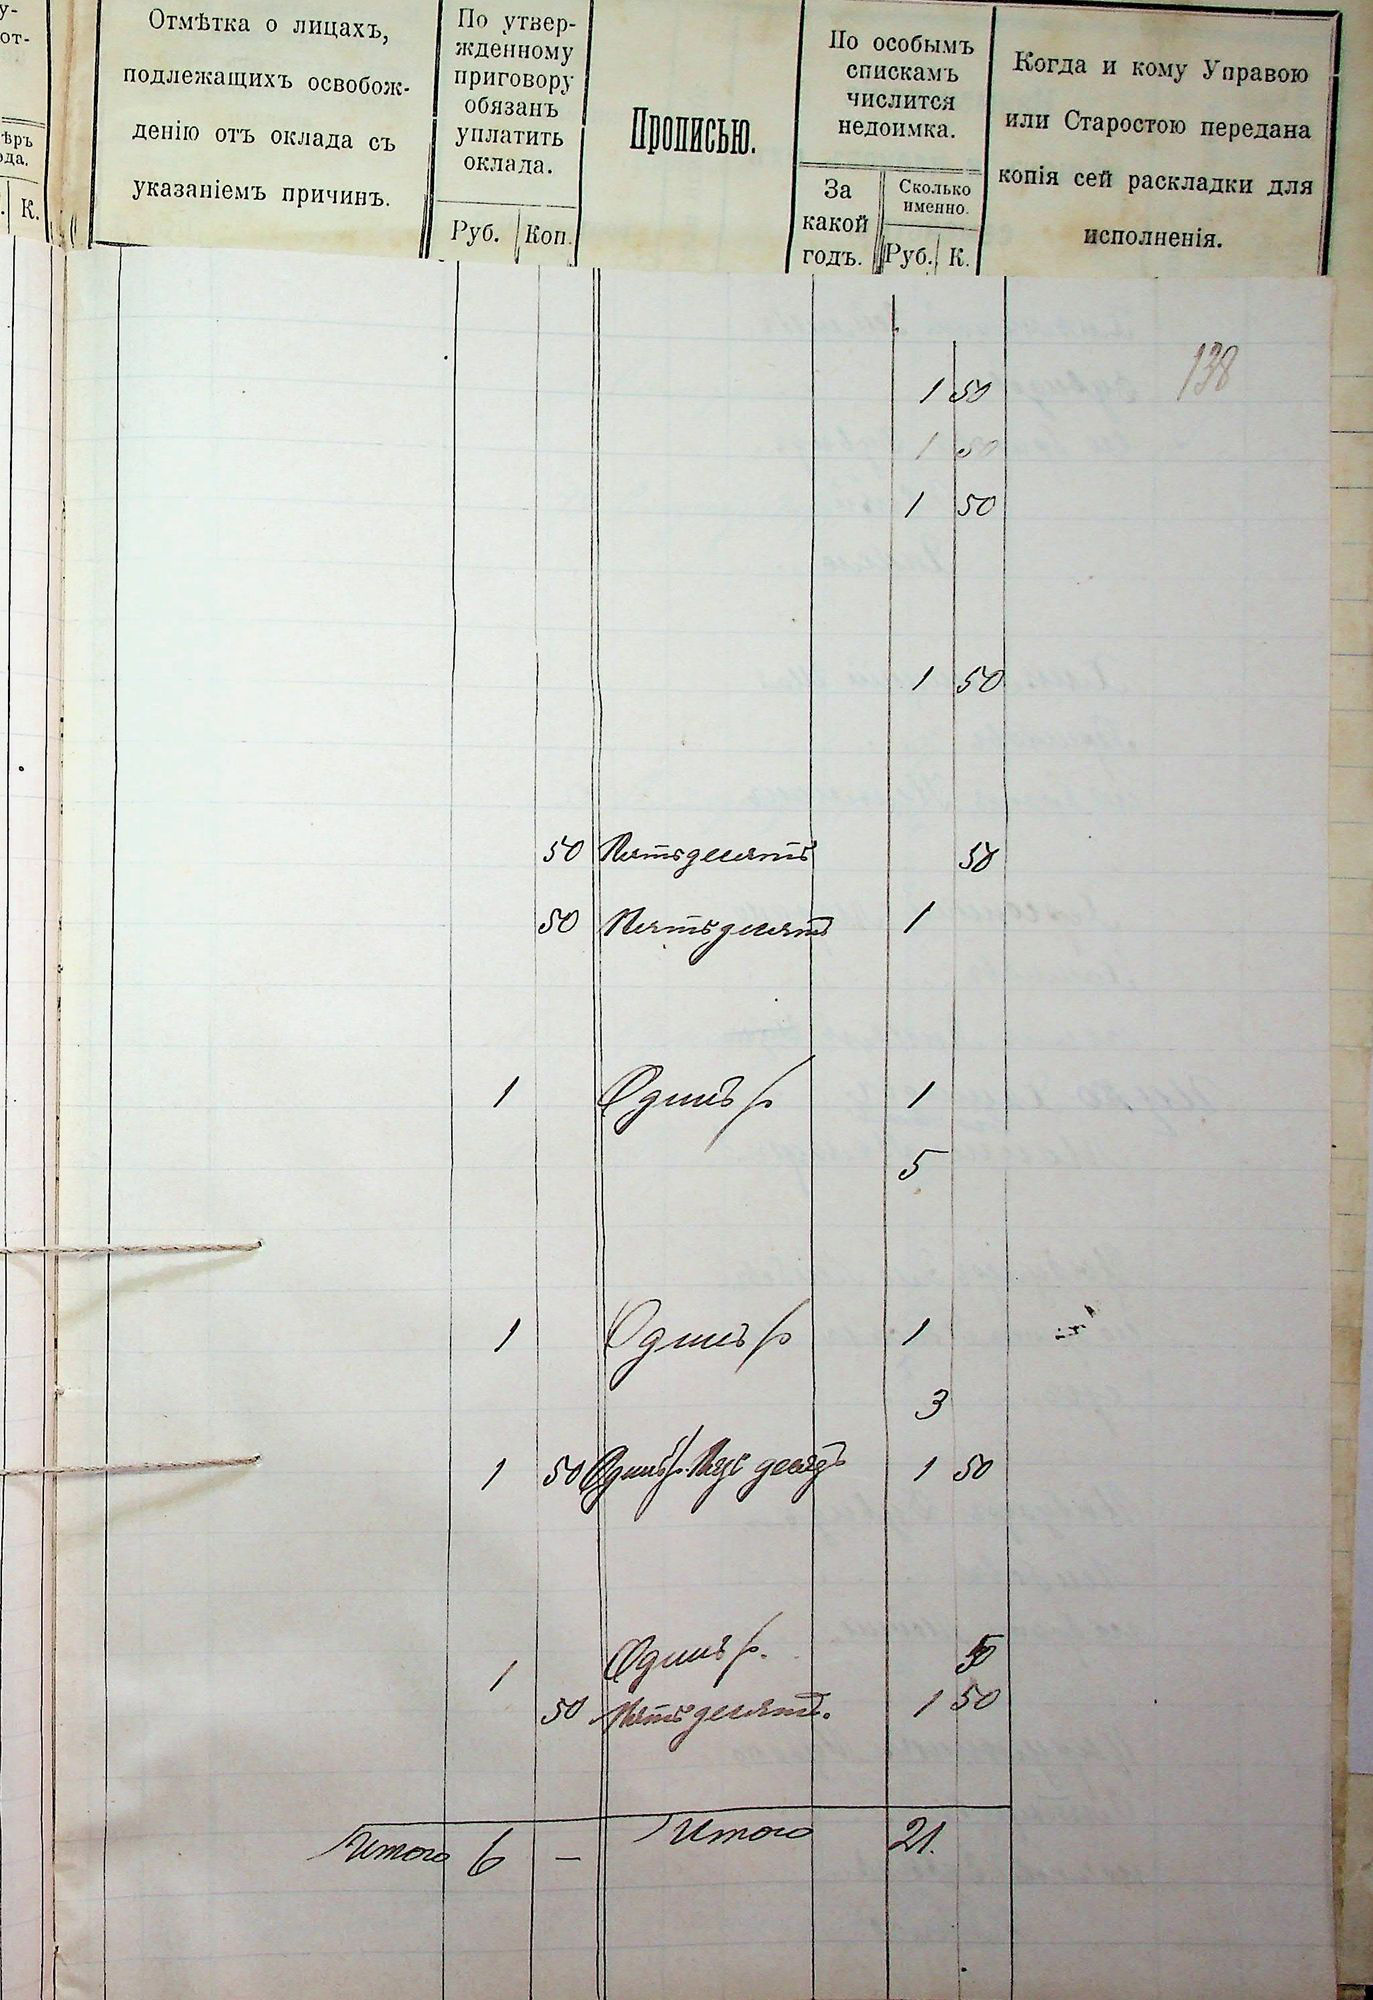 у-
от-
ѣръ
ода.
К.
Отмѣтка о лицахъ,
подлежащихъ освобож-
денію отъ оклада съ
указаніемъ причинъ.
По утвер-
жденному
приговору
обязанъ
уплатить
оклада.
Руб. Коп.
Прописью.
По особымъ
спискамъ
числится
недоимка.
За
какой
годъ.
Сколько
именно.
Руб. К.
Когда и кому Управою
или Старостою передана
копія сей раскладки для
исполненія.
138
1 50
1 50
1 50
1 50
50 Пятьдесятъ 50
50 Пятьдесят 1
1 Одинъ р 1
5
1 Одинъ р 1
3
1 50 Одинъ р. 1 50
1 Одинъ р. 50
50 Пятьдесят. 1 50
Итого 6 — Итого 21.